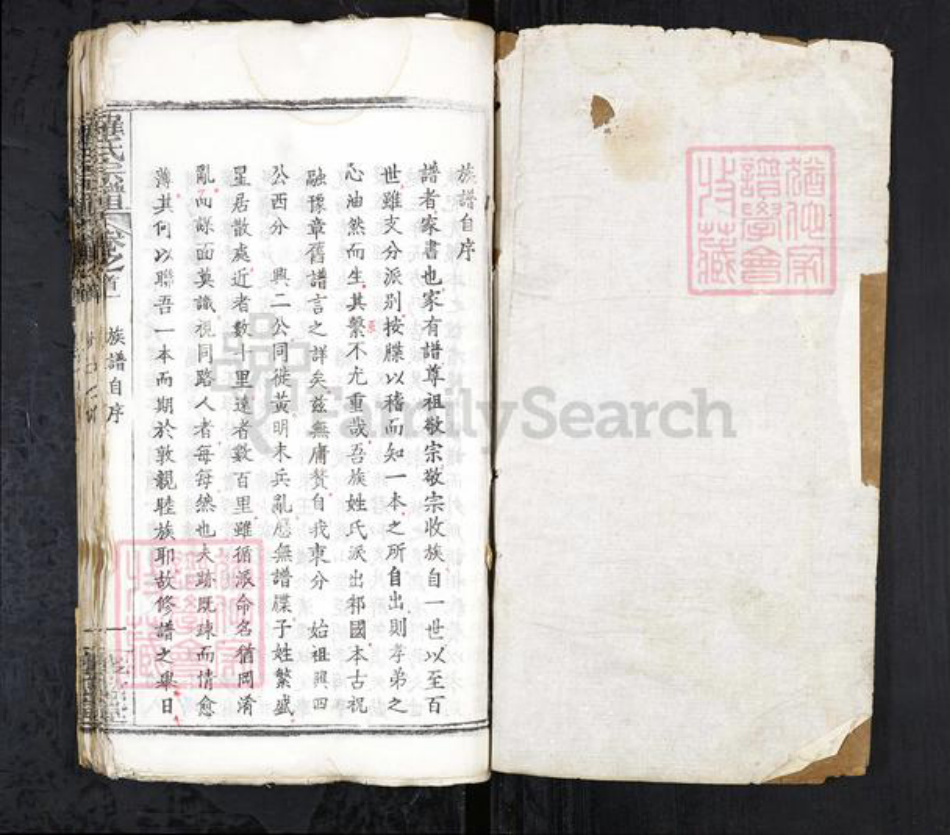 族譜自序
譜者家書也家有譜尊祖敬宗敬宗收族自一世以至百
世雖支分派別按牒以稽而知一本之所自出則孝弟之
心油然而生其繫不尤重哉吾族姓氏派出祁國本古祝
融豫章舊譜言之詳矣茲無庸贅自我東分 始祖興四
公西分 興二公同徙黃明末兵亂慼無譜牒子姓繁盛
星居散處近者數十里遠者數百里雖循派命名猶罔淆
亂而謀面莫識視同路人者每每然也夫跡既疎而情愈
薄其何以聯吾一本而期於敦親睦族耶故修譜之舉日
羅氏宗譜 卷之首一 族譜自序
FamilySearch
猶他家
譜學會
收藏